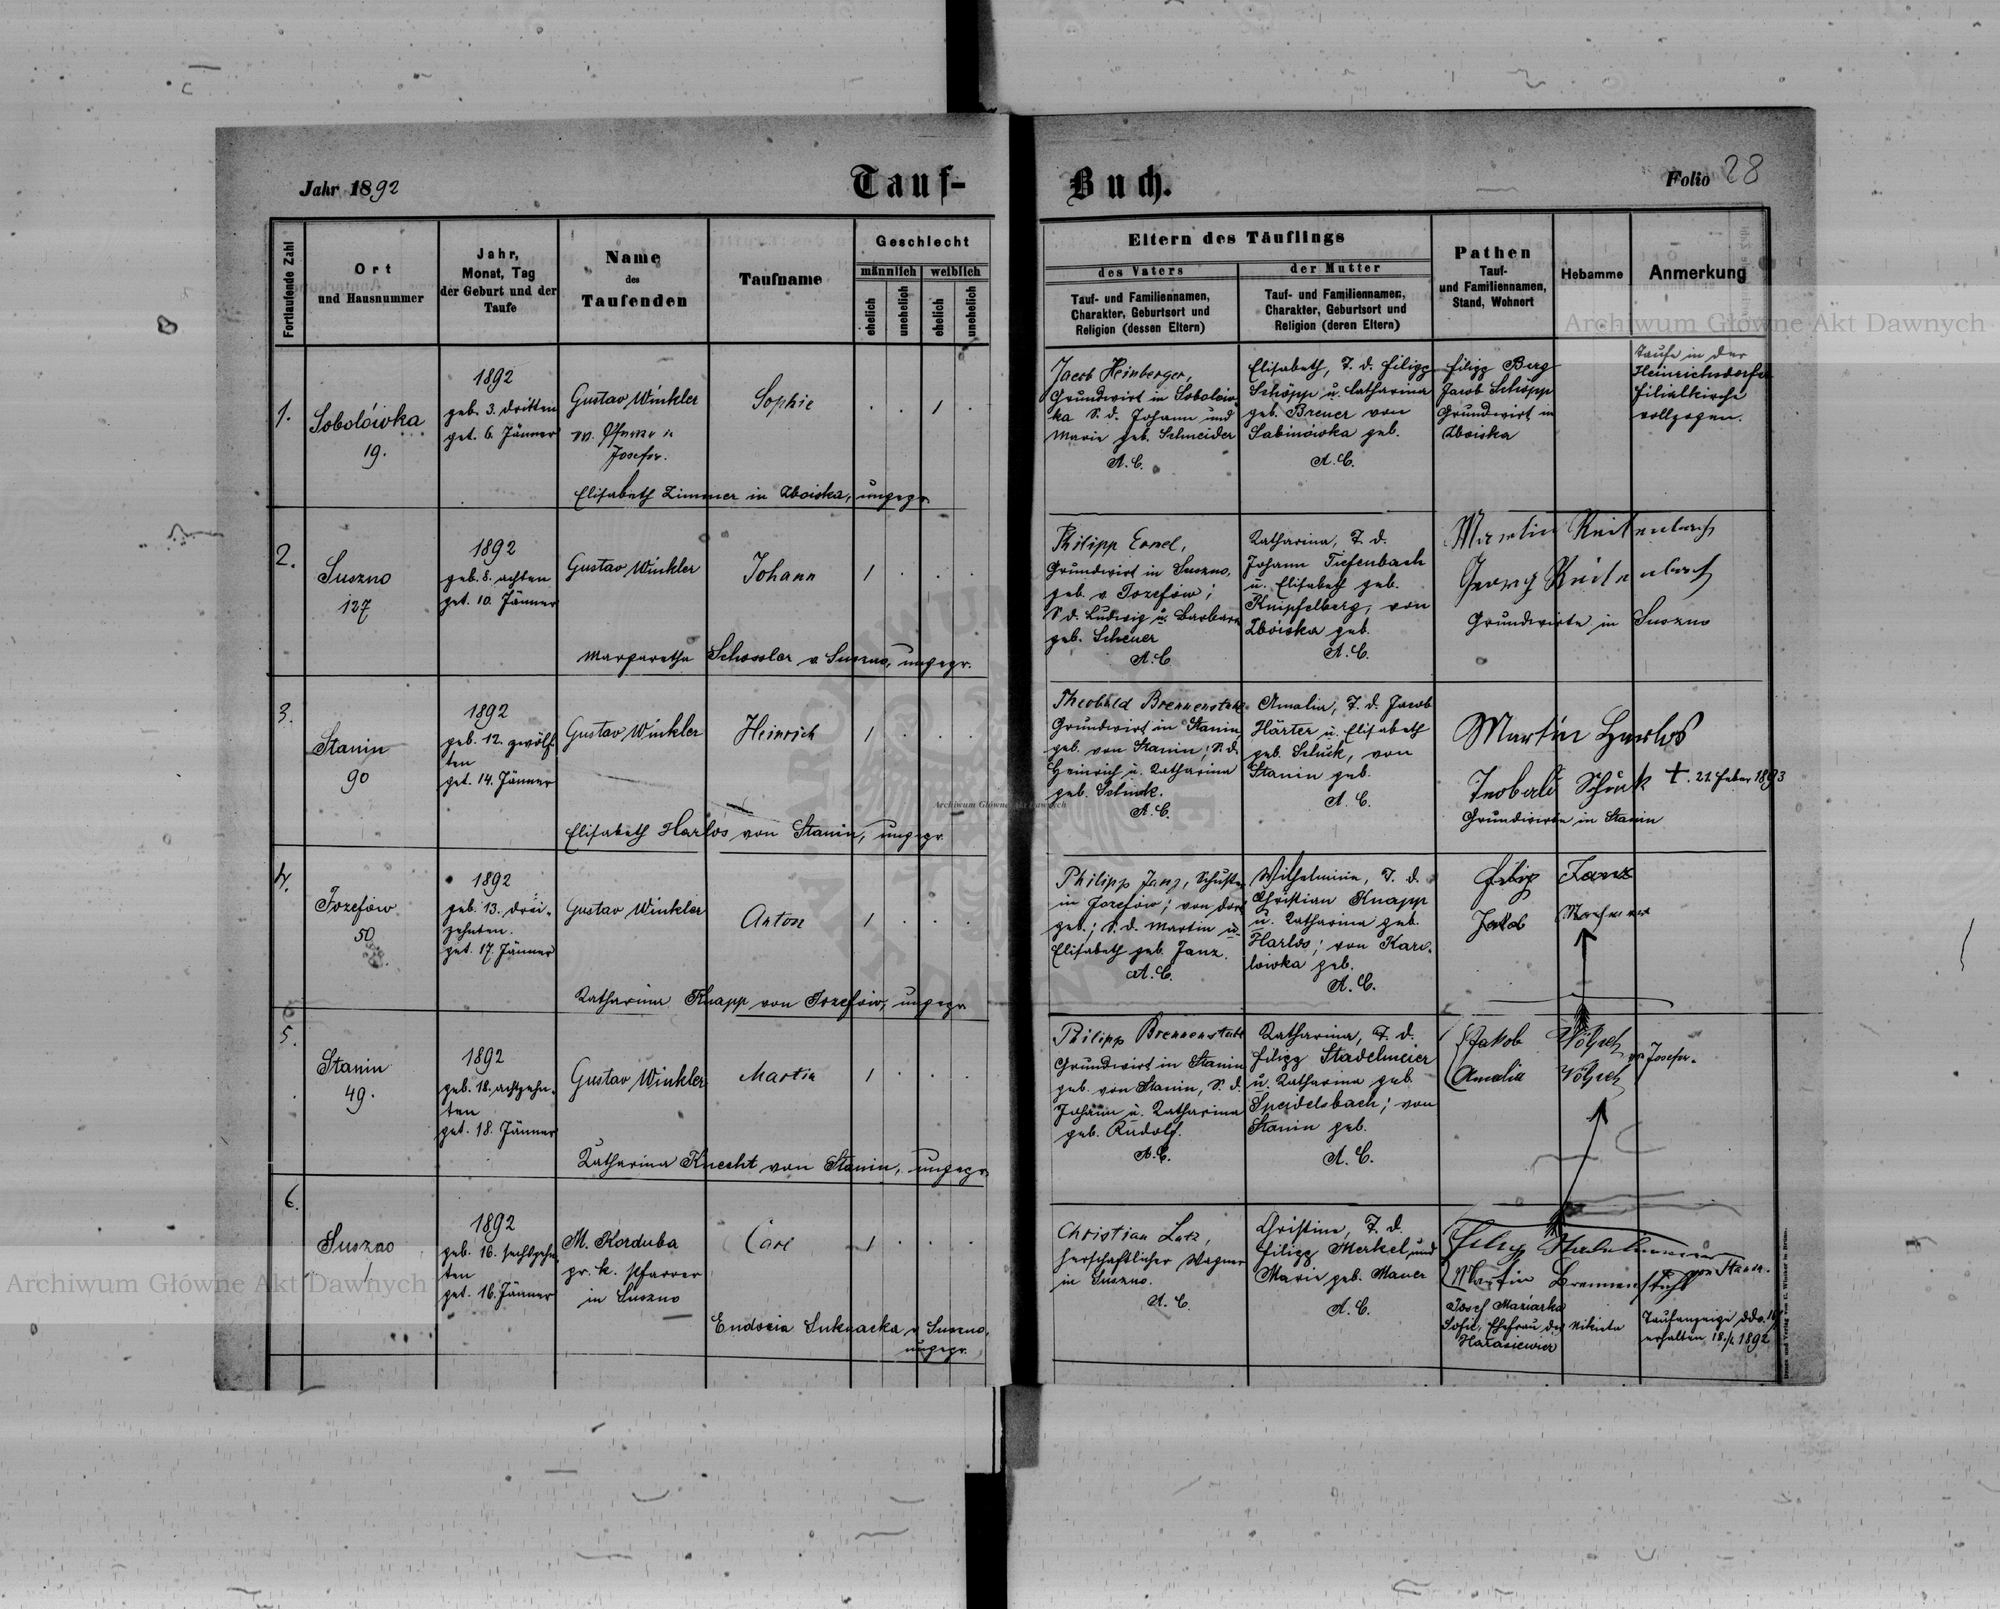 Jahr 1892
Tauf-
Buch.
Folio 28
Fortlaufende Zahl
Ort
und Hausnummer
Jahr,
Monat, Tag
der Geburt und der
Taufe
Name
des
Taufenden
Taufname
Geschlecht
männlich
weiblich
ehelich
unehelich
ehelich
unehelich
Eltern des Täuflings
des Vaters
der Mutter
Tauf- und Familiennamen,
Charakter, Geburtsort und
Religion (dessen Eltern)
Tauf- und Familiennamen,
Charakter, Geburtsort und
Religion (deren Eltern)
Pathen
Tauf-
und Familiennamen,
Stand, Wohnort
Hebamme
Anmerkung
1.
Sobolówka
19.
1892
geb. 3. dritten
get. 6. Jänner
Gustav Winkler
Josefow.
Sophie
1
Elisabeth Zimmer in Zboiska, ungepr.
Jacob Heinberger,
Grundwirt in Sobolów-
ka S. d. Johann und
Marie geb. Schneider
A. C.
Elisabeth, T. d. Filipp
Schöpp u. Catharina
geb. Breuer von
Sabinówka geb.
A. C.
Filipp Berg
Jacob Schöpp
Grundwirt in
Zboiska
Taufe in der
Heinrichsdorfer
Filialkirche
vollzogen.
2.
Suszno
127
1892
geb. 8. achten
get. 10. Jänner
Gustav Winkler
Johann
1
Margaretha Schossler v Suszno, ungepr.
Philipp
Grundwirt in Suszno,
geb. v Jozefów;
S. d. Ludwig u. Barbara
geb. Scheuer
A. C.
Katharina, T. d.
Johann Tiefenbach
u. Elisabeth geb.
Knipfelberg, von
Zboiska geb.
A. C.
Martin Reitenbach
Georg Reitenbach
Grundwirte in Suszno
3.
Stanin
90
1892
geb. 12. zwölf-
ten
get. 14. Jänner
Gustav Winkler
Heinrich
1
Elisabeth Harlos von Stanin, ungepr.
Theobald Brennenstuhl
Grundwirt in Stanin,
geb. von Stanin; S. d.
Heinrich u. Katharina
geb. Schuck.
A. C.
Amalia, T. d. Jacob
Härter u. Elisabeth
geb. Schuck, von
Stanin geb.
A. C.
Martin Harlos
Teobald Schuk + 21. Feber 1893
Grundwirte in Stanin
4.
Jozefów
50
1892
geb. 13. drei-
zehnten.
get. 17. Jänner
Gustav Winkler
Anton
1
Katharina Knapp von Jozefów, ungepr.
Philipp Janz, Schuster
in Jozefów; von dort
geb.; S. d. Martin u.
Elisabeth geb. Janz.
A. C.
Wilhelmine, T. d.
Christian Knapp
u. Katharina geb.
Harlos; von Karo-
lówka geb.
A. C.
Filip Janz
Jakob
5.
Stanin
49.
1892
geb. 18. achtzehn-
ten
get. 18. Jänner
Gustav Winkler
Martin
1
Katharina Knecht von Stanin, ungepr.
Philipp Brennenstuhl
Grundwirt in Stanin
geb. von Stanin, S. d.
Johann u. Katharina
geb. Rudolf.
A. C.
Katharina, T. d.
Filipp Stadelmeier
u. Katharina geb.
Speidelsbach; von
Stanin geb.
A. C.
Jakob
Amalia
6.
Suszno
1
1892
geb. 16. sechzehn-
ten
get. 16. Jänner
M. Korduba
gr. k. Pfarrer
in Suszno
Carl
1
v Suszno,
ungepr.
Christian Lutz,
herschaftlicher Wagner
in Suszno.
A. C.
Christine, T. d.
Filipp Merkel und
Marie geb. Mauer
A. C.
Filip Stadelmeier
Martin Brennenstuhl von Stanin.
Josef Maziarka
Sofie, Ehefrau des Nikita
Harasiewicz
Taufanzeige ddo. 16/1
erhalten 18./1. 1892
Archiwum Główne Akt Dawnych
Archiwum Główne Akt Dawnych
Archiwum Główne Akt Dawnych